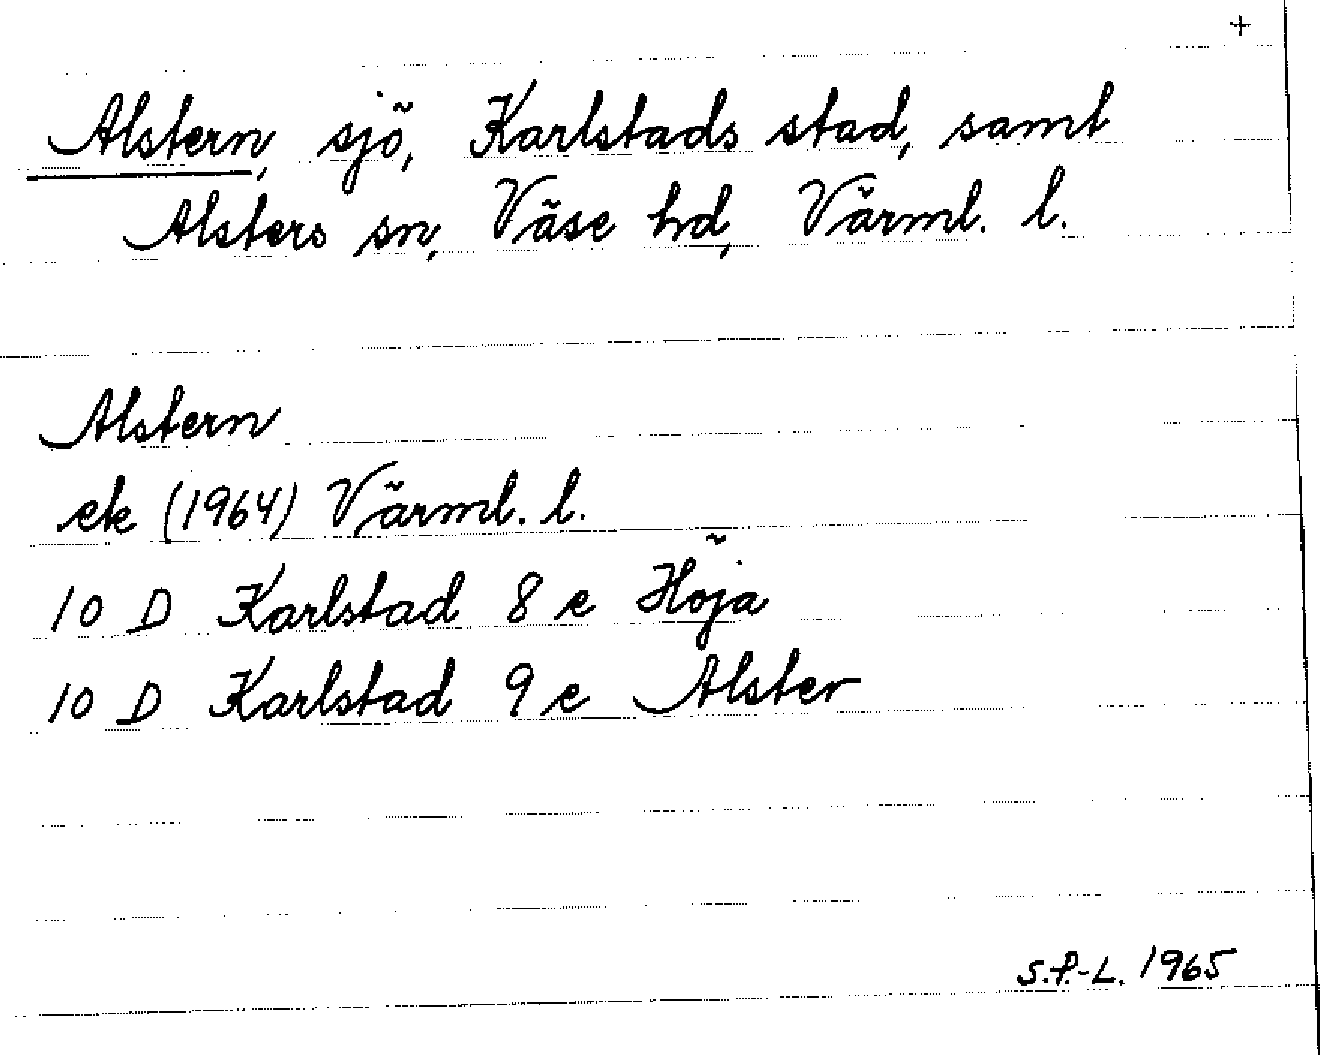 +
Alstern, sjö, Karlstads stad, samt
Alsters sn, Väse hd, Värml. l.
Alstern
ek (1964) Värml. l.
10 D Karlstad 8 e Höja
10 D Karlstad 9 e Alster
S.P.-L. 1965